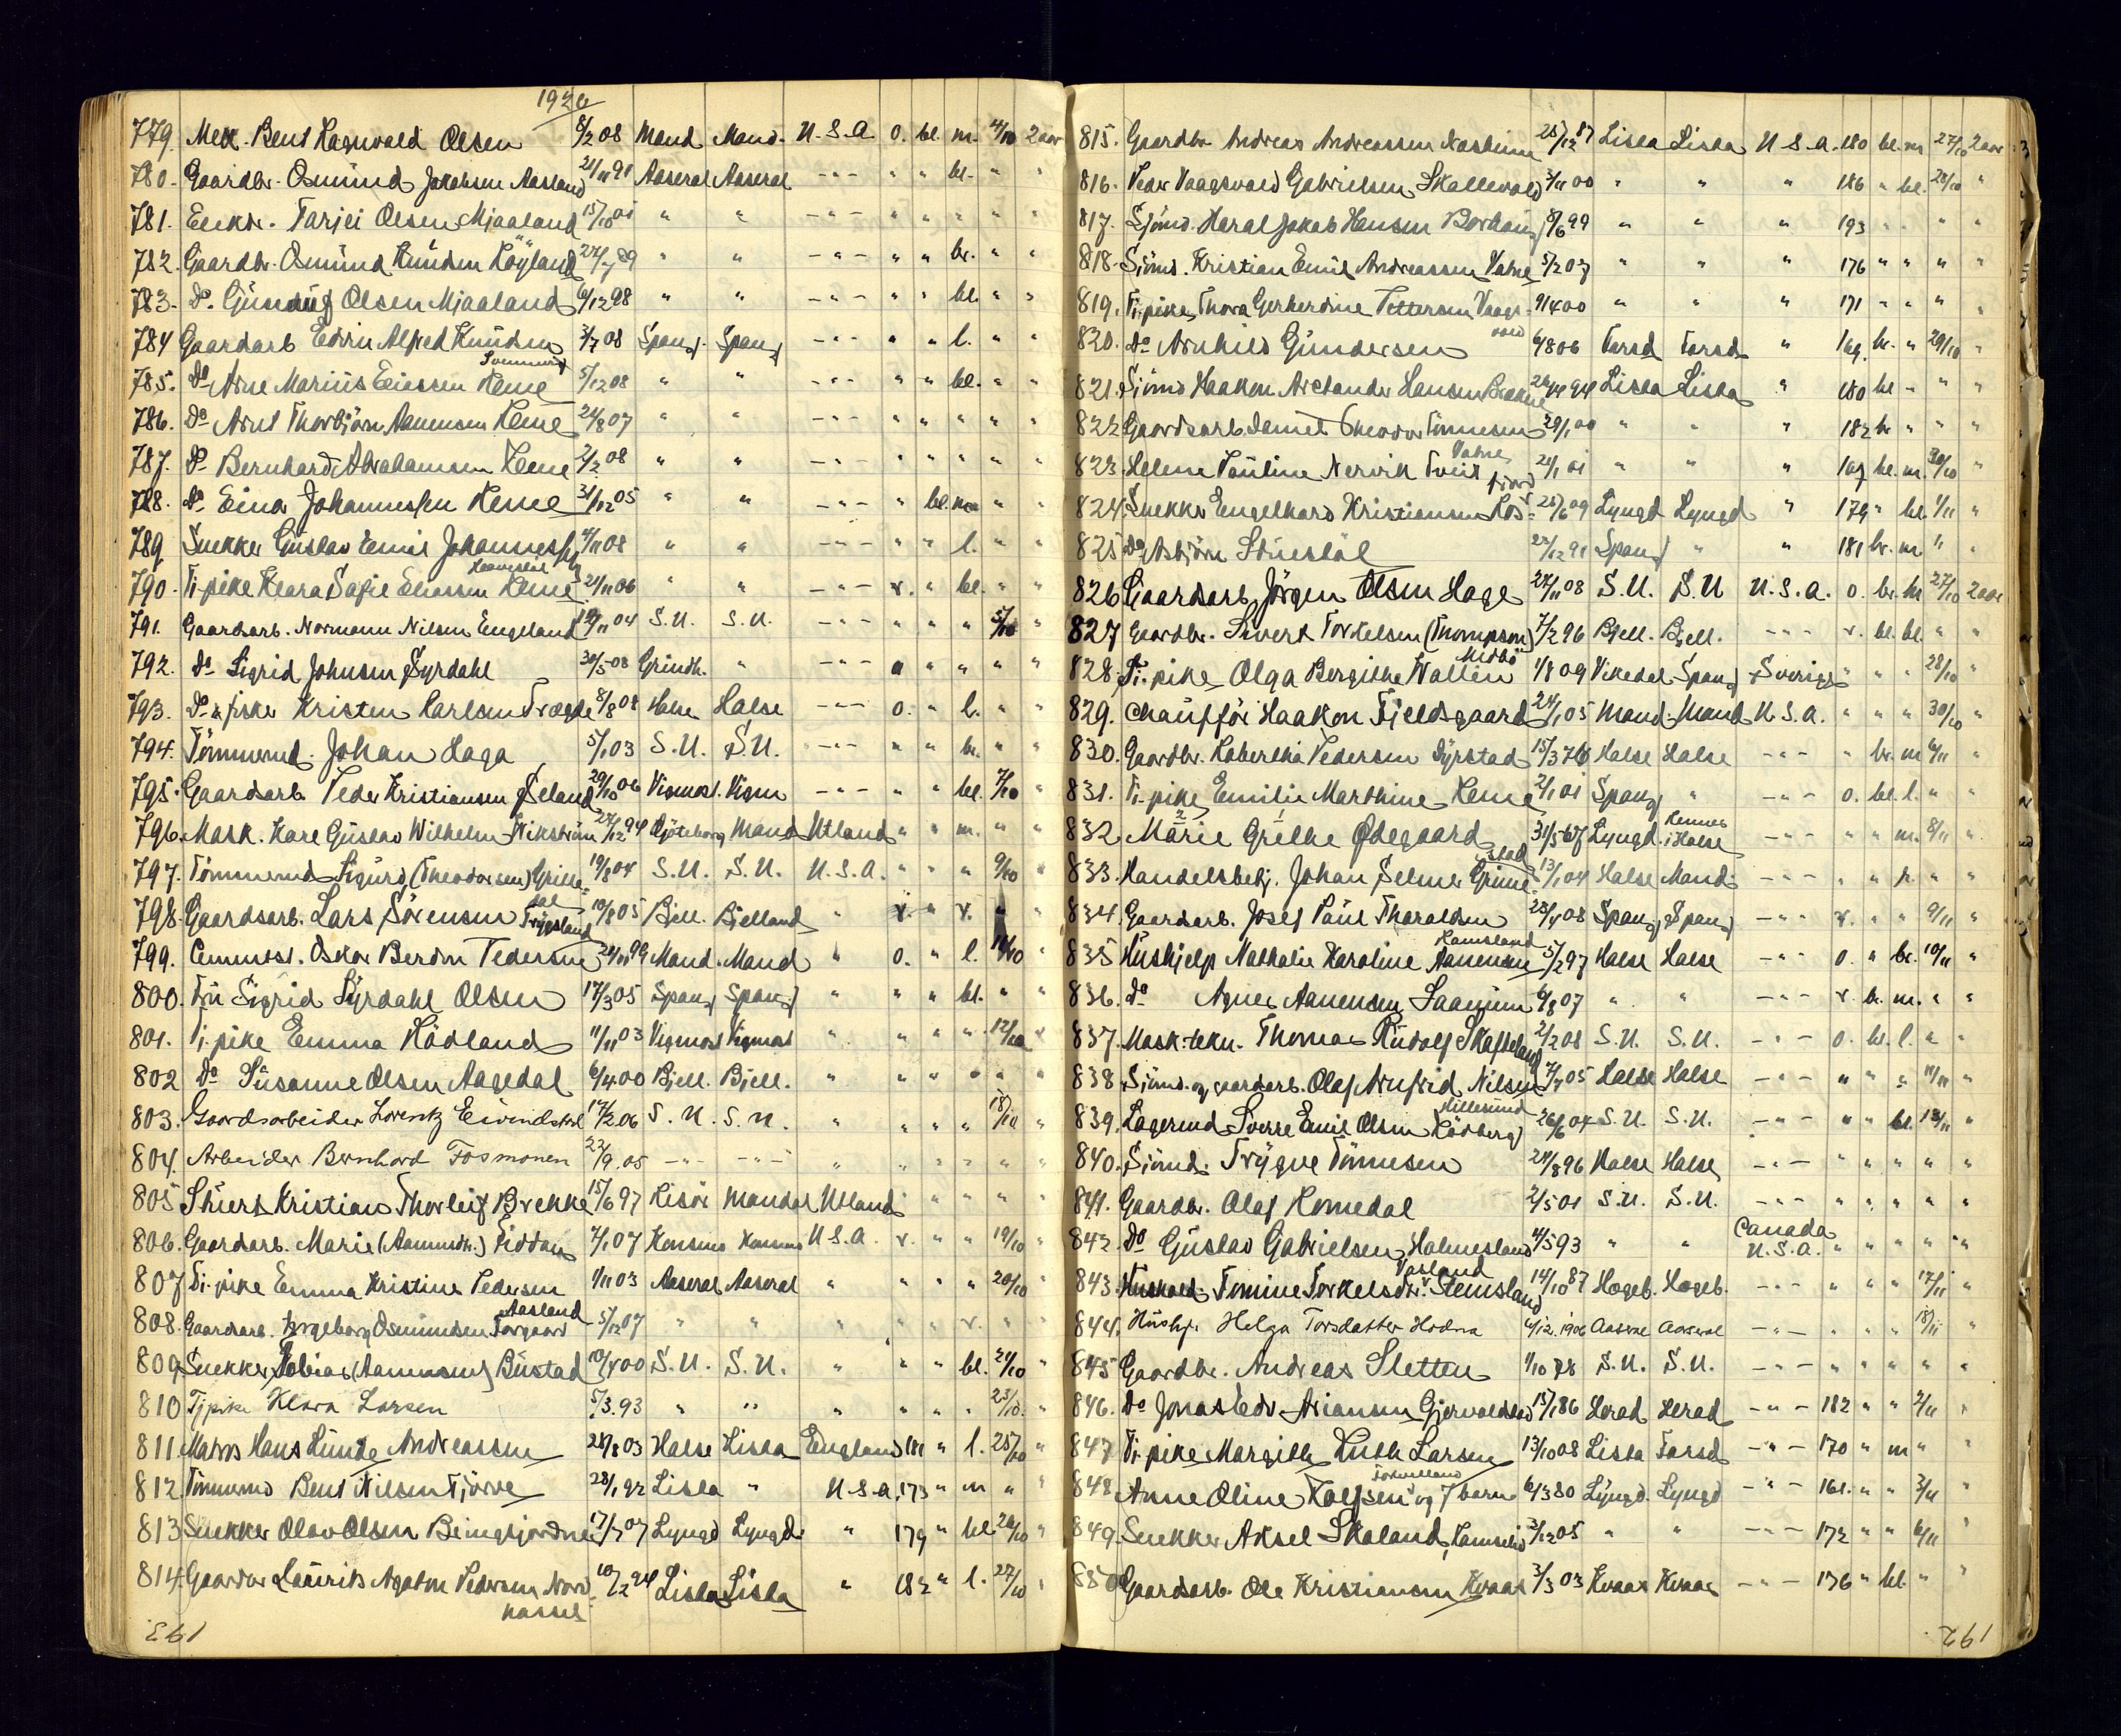 1926
779. Mek. Bent Ragnvald Olsen 8/2 08 Mand Mand. U.S.A. o. bl. m. 4/10 2 aar
780. Gaardbr. Osmund Jakobsen Aasland 21/11 91 Aaseral Aaseral -"- " " bl. " "
781. Enkbr. Tarjei Olsen Mjaaland 15/10 01 " " -"- " " " " "
782. Gaardbr. Osmund Knudsen Röyland 27/7 89 " " -"- " " br. " "
783. Do. Gunulf Olsen Mjaaland 6/12 98 " " -"- " " bl. " "
784 Gaardarb Edvin Alfred Knudsen 3/7 08 Spang. Spang -"- " " l. " "
785. Do Arne Marius Eliassen Kleve 5/12 08 " " -"- " " bl. " "
786. Do Arnt Thorbjörn Aanensen Kleve 24/8 07 " " -"- " " " " "
787. Do Bernhard Abrahamsen Kleve 2/2 08 " " -"- " " " " "
788. Do Einar Johannessen Kleve 31/12 05 " " -"- " bl. " "
789 Snekker Gustav Emil Johannessen 4/11 08 " " -"- " " l. " "
790. Tj.pike Klara Sofie Eliassen Kleve 21/11 06 " " -"- v. " bl. " "
791. Gaardsarb. Normann Nilsen Engeland 19/11 04 S.U. S.U. -"- " " " 5/10 "
792. Do Sigrid Johnsen Syrdahl 30/5 08 Grindh. " -"- " " " " "
793. Do & fisker Kristen Karlsen Trægde 8/8 08 Halse Halse -"- o. " l. " "
794. Tömmermd. Johan Haga 5/1 03 S.U. S.U. -"- " " br. " "
795. Gaardsarb Peder Kristiansen Öseland 29/10 06 Vigmost. Vigm -"- " " bl. 7/10 "
796. Mask. Karl Gustav Wilhelm Wikström 27/12 94 Göteborg Mand Utland " " m. " "
797. Tömmermd Sigurd (Theodorsen) Grisle- 19/8 04 S.U. S.U. U.S.A. " " " 9/10 "
dal
798. Gaardsarb. Lars Sörensen Trygsland 10/8 05 Bjell. Bjelland " v. " v. " "
799. Oskar Berdin Pedersen 24/11 99 Mand. Mand " o. " l. 11/10 "
800. Fru Sigrid Syrdahl Olsen 17/3 05 Spang Spang " " " bl. " "
801. Tj.pike Emma Rödland 11/11 03 Vigmost Vigmost " " " " 12/10 "
802 Do Susanne Olsen Aagedal 6/4 00 Bjell. Bjell. " " " " " "
803. Gaardsarbeider Lorentz Eivindstøl 17/2 06 S.U. S.U. " " " " 18/10 "
804. Arbeider Bernhard Fosmonen 22/9 05 -"- -"- " " " " " "
805 Stuert Kristian Thorleif Brekke 15/6 97 Risör Mandal Utland " " " " "
806. Gaardsarb. Marie (Aamundsdtr.) Fiddan 7/1 07 Konsmo Konsmo U.S.A. v. " " 19/10 "
807 Tj.pike Emma Kristine Pedersen 1/11 03 Aaseral Aaseral " " " " 20/10 "
Aasland
808. Gaardsarb. Ingeborg Osmundsen Torgaard 5/12 07 " " " " " v. " "
809 Snekker Tobias (Aanensen) Bustad 10/4 00 S.U. S.U. " " " bl. 21/10 "
810 Tj.pike Klara Larsen 5/3.93 " " " " " " 23/10. "
811 Matros Hans Lunde Andreassen 28/8 03 Halse Lista England 181 " l. 25/10 "
812 Tömmermd Bent Nilsen Tjörve 28/1 92 Lista " U.S.A. 173 " m " "
813 Snekker Olav Olsen Bringsjordnes 17/7 07 Lyngd Lyngd. " 179 " bl. 26/10 "
814. Gaardbr Lauritz Agaton Pedersen Nord- 10/2 94 Lista Lista " 182 " l. 27/10 "
hassel
193
815. Gaardbr. Andreas Andreassen 25/12 87 Lista Lista U.S.A. 180 bl. m 27/10 2 aar
816. Peder Vaagsvold Gabrielsen Skollevold 3/11 00 " " " 186 " bl. 28/10 "
817. Sjömd. Haral Jakob Hansen Borhaug 8/6 99 " " " 193 " " " "
818. Sjömd. Kristian Emil Andreassen Vatne 5/2 07 " " " 176 " " " "
819. Tj.pike Thora Gerhardine Pettersen Vaags- 9/4 00 " " " 171 " " " "
vold
820. Do Arnhild Gundersen 6/8 06 Farsd Farsd " 169 br. " 29/10 "
821. Sjömd Haakon Alexander Hansen Brekne 26/4 94 Lista Lista " 180 bl " " "
822 Gaardsarb. Daniel Theodor Tönnesen 29/1 00 " " " 182 br " " "
Vatne
823. Helene Pauline Nervik Tveit 21/1 01 " " " 169 bl. m. 30/10 "
fjord
824. Snekker Engelhard Kristiansen Ros- 28/6 09 Lyngd Lyngd " 179 " bl. 1/11 "
825 Do Asbjörn Stuestöl 22/12 91 Spang " " 181 br. m " "
826 Gaardsarb. Jörgen Olsen Hage 27/11 08 S.U. S.U U.S.A. o. br. br 27/10 2 aar
827 Gaardbr. Sivert Torkelsen (Thompson) 7/2 96 Bjell. Bjell. -"- v. bl. bl. " "
Midbö
828. Tj.pike Olga Bergithe Wallin 1/8 09 Vikedal Spang Sverige " " " 28/10 "
829. Chaufför Haakon Fjeldsgaard 24/1 05 Mand. Mand U.S.A. " " " 30/10 "
830. Gaardbr. Pedersen Dyrstad 15/3 76 Halse Halse -"- " br. m 6/11 "
831. Tj.pike Emilie Marthine Kleve 2/1 01 Spang " -"- o. bl. l. " "
832. Marie Grethe Ødegaard 31/5 67 Lyngd. i Halse -"- " " m. 8/11 "
stad
833. Handelsbetj. Johan Selmer Grime- 13/1 04 Halse Mand. -"- " " " "
834. Gaardarb. Josef Paul Tharaldsen 23/4 08 Spang Spang -"- v. " " 9/11 "
Ramsland
835 Hushjelp Nathalie Karoline Aanensen 5/2 97 Halse Halse -"- o. " br. 10/11 "
836. Do Agnes Aanensen Saanum 6/8 07 " " -"- v. br. m. " "
837. Mask.tekn. Thomas Rudolf Skafteland 2/2 08 S.U. S.U. -"- o. br. l. " "
838 Sjömd. og gaardarb. Olaf Arnfrid Nilsen 7/7 05 Halse Halse -"- " " " 11/11 "
Hillesund
839. Lagermd Sverre Emil Olsen Rödberg 26/6 04 S.U. S.U. -"- " " bl. 13/11 "
840. Sjömd. Trygve Tönnesen 24/8 96 Halse Halse -"- " " " " "
841. Gaardbr. Olaf Homedal 2/5 01 S.U. S.U. -"- " " " " "
Canada
842. Do Gustav Gabrielsen Holmesland 4/5 93 " " U.S.A. " " " " "
843. Tomine Torkelsdtr. Stemsland 14/10 87 Hægeb. Hægeb. -"- " " " 17/11 "
844. Hushj. Helga Torsdatter Hodna 6/12.1906 Aaseral Aaseral -"- " " " 18/11 "
845 Gaardbr. Andreas Sletten 1/10 78 S.U. S.U. -"- " " " " "
846. Do Jonas Edv. Ariansen Gjervoldstad 15/1 86 Herad Herad -"- 182 " " 2/11 "
847 Tj.pike Margith Ruth Larsen 13/10 08 Lista Farsd -"- 170 " m " "
848. Anne Oline Rolfsen og 7 barn 6/3 80 Lyngd. Lyngd -"- 161. " " 3/11 "
849. Snekker Aksel Skoland, 3/12 05 " " -"- 172 " " 6/11 "
850 Gaardsarb. Ole Kristiansen Kvaas 3/3 03 Kvaas Kvaas -"- 176 " bl. " "
192.